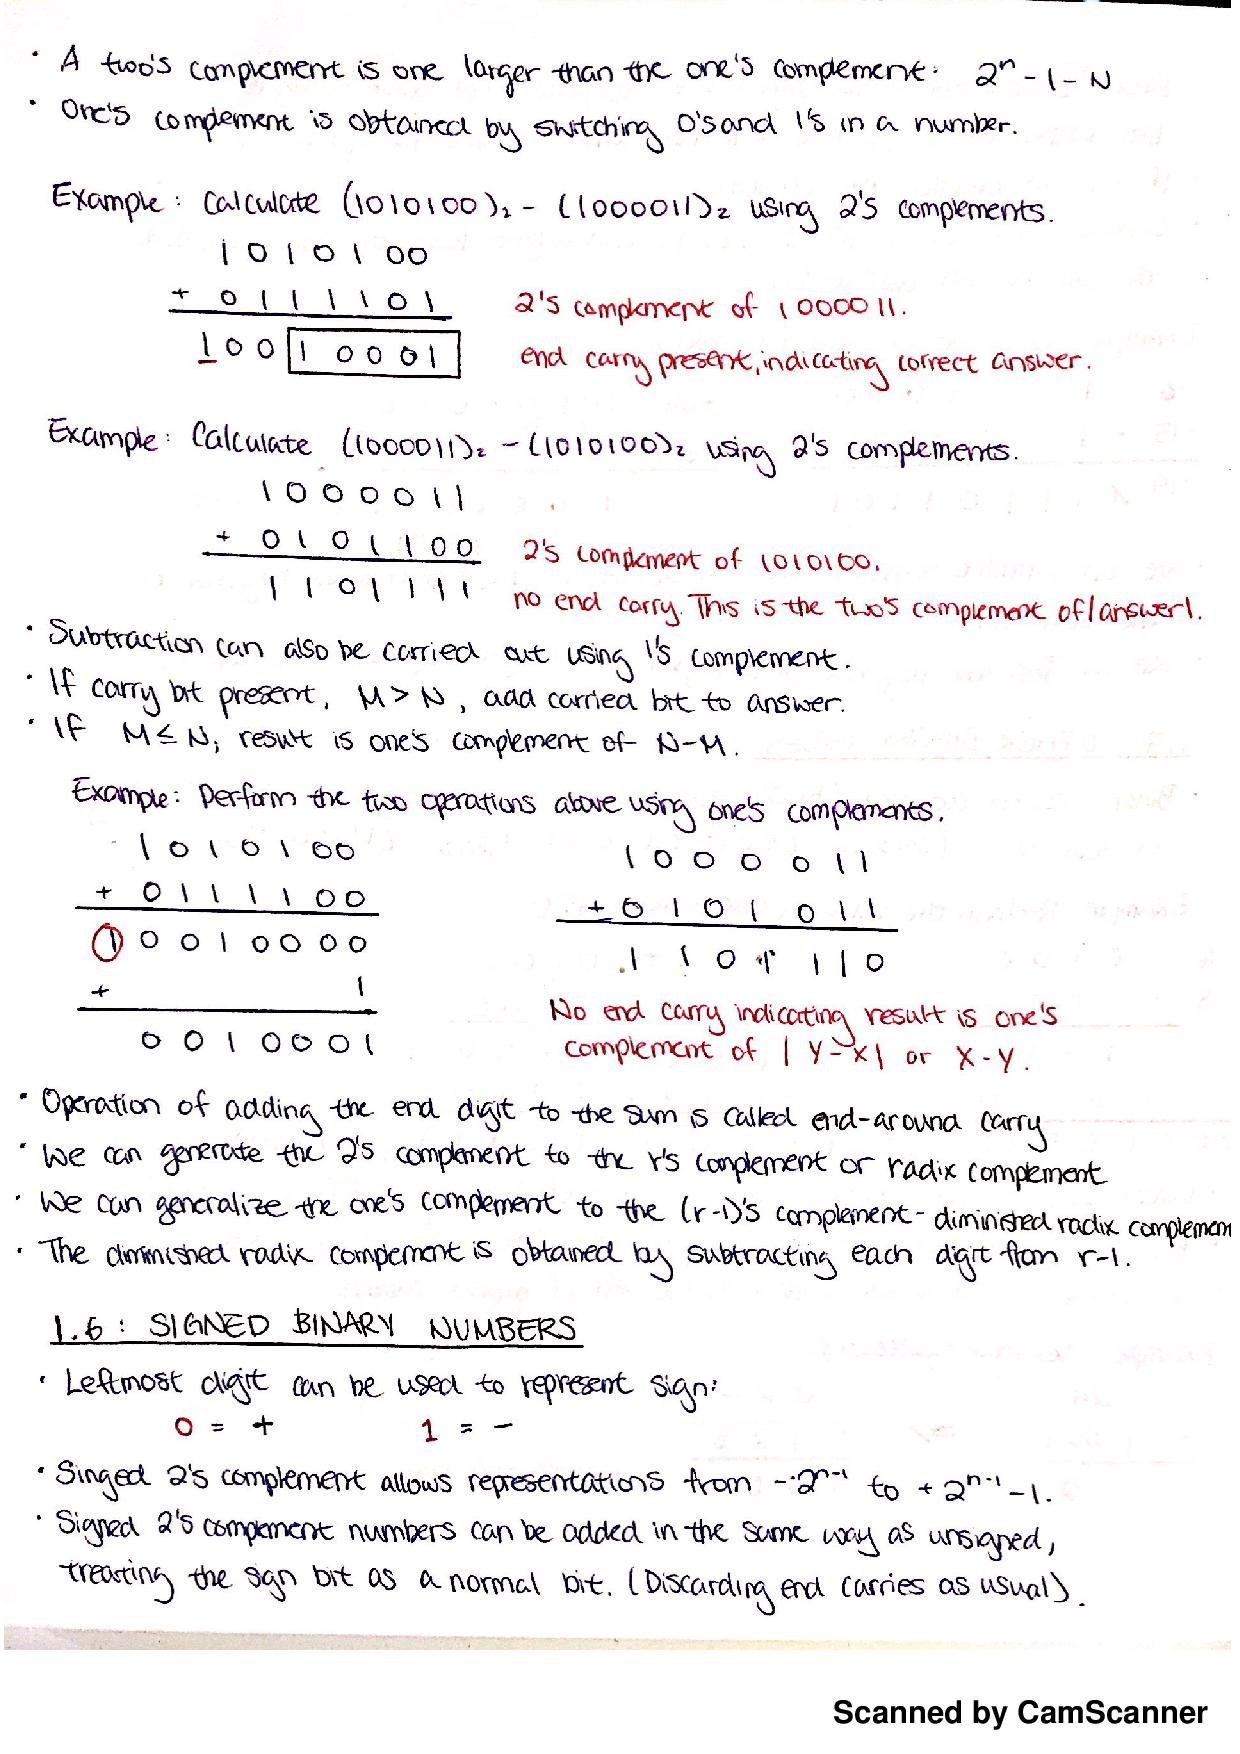 · A two's complement is one larger than the one's complement: 2ⁿ - 1 - N
· One's complement is obtained by switching 0's and 1's in a number.
Example: Calculate (1010100)₂ - (1000011)₂ using 2's complements.
1 0 1 0 1 0 0
+ 0 1 1 1 1 0 1 2's complement of 1000011.
1 0 0 1 0 0 0 1 end carry present, indicating correct answer.
Example: Calculate (1000011)₂ - (1010100)₂ using 2's complements.
1 0 0 0 0 1 1
+ 0 1 0 1 1 0 0 2's complement of 1010100.
1 1 0 1 1 1 1 no end carry. This is the two's complement of |answer|.
· Subtraction can also be carried out using 1's complement.
· If carry bit present, M > N, add carried bit to answer.
· If M ≤ N, result is one's complement of N-M.
Example: Perform the two operations above using one's complements.
1 0 1 0 1 0 0 1 0 0 0 0 1 1
+ 0 1 1 1 1 0 0 + 0 1 0 1 0 1 1
1 0 0 1 0 0 0 0 1 1 0 1 1 1 0
+ 1
0 0 1 0 0 0 1
No end carry indicating result is one's
complement of |Y-X| or X-Y.
· Operation of adding the end digit to the sum is called end-around carry
· We can generate the 2's complement to the r's complement or radix complement
· We can generalize the one's complement to the (r-1)'s complement - diminished radix complemen
· The diminished radix complement is obtained by subtracting each digit from r-1.
1.6: SIGNED BINARY NUMBERS
· Leftmost digit can be used to represent sign:
0 = + 1 = -
· Singed 2's complement allows representations from -2ⁿ⁻¹ to +2ⁿ⁻¹-1.
· Signed 2's complement numbers can be added in the same way as unsigned,
treating the sign bit as a normal bit. (Discarding end carries as usual).
Scanned by CamScanner